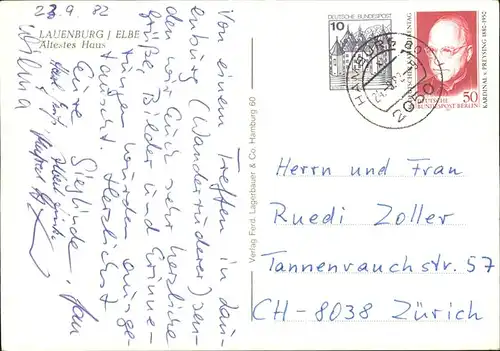 23.9.82
LAUENBURG / ELBE
Ältestes Haus
Von einem Treffen in Lau-
enburg (Wanderruderer) sen-
den wir Euch sehr herzliche
Grüße. Bilder und Erinne-
rungen wurden ausge-
tauscht. Herzlichst
Eure Sieglinde,
Wilma
Verlag Ferd. Lagerbauer & Co. Hamburg 60
DEUTSCHE BUNDESPOST
10
HAMBURG
2000
50
DEUTSCHE BUNDESPOST BERLIN
KARDINAL v. PREYSING 1880-1950
Herrn und Frau
Ruedi Zoller
Tannenrauchstr. 57
CH-8038 Zürich